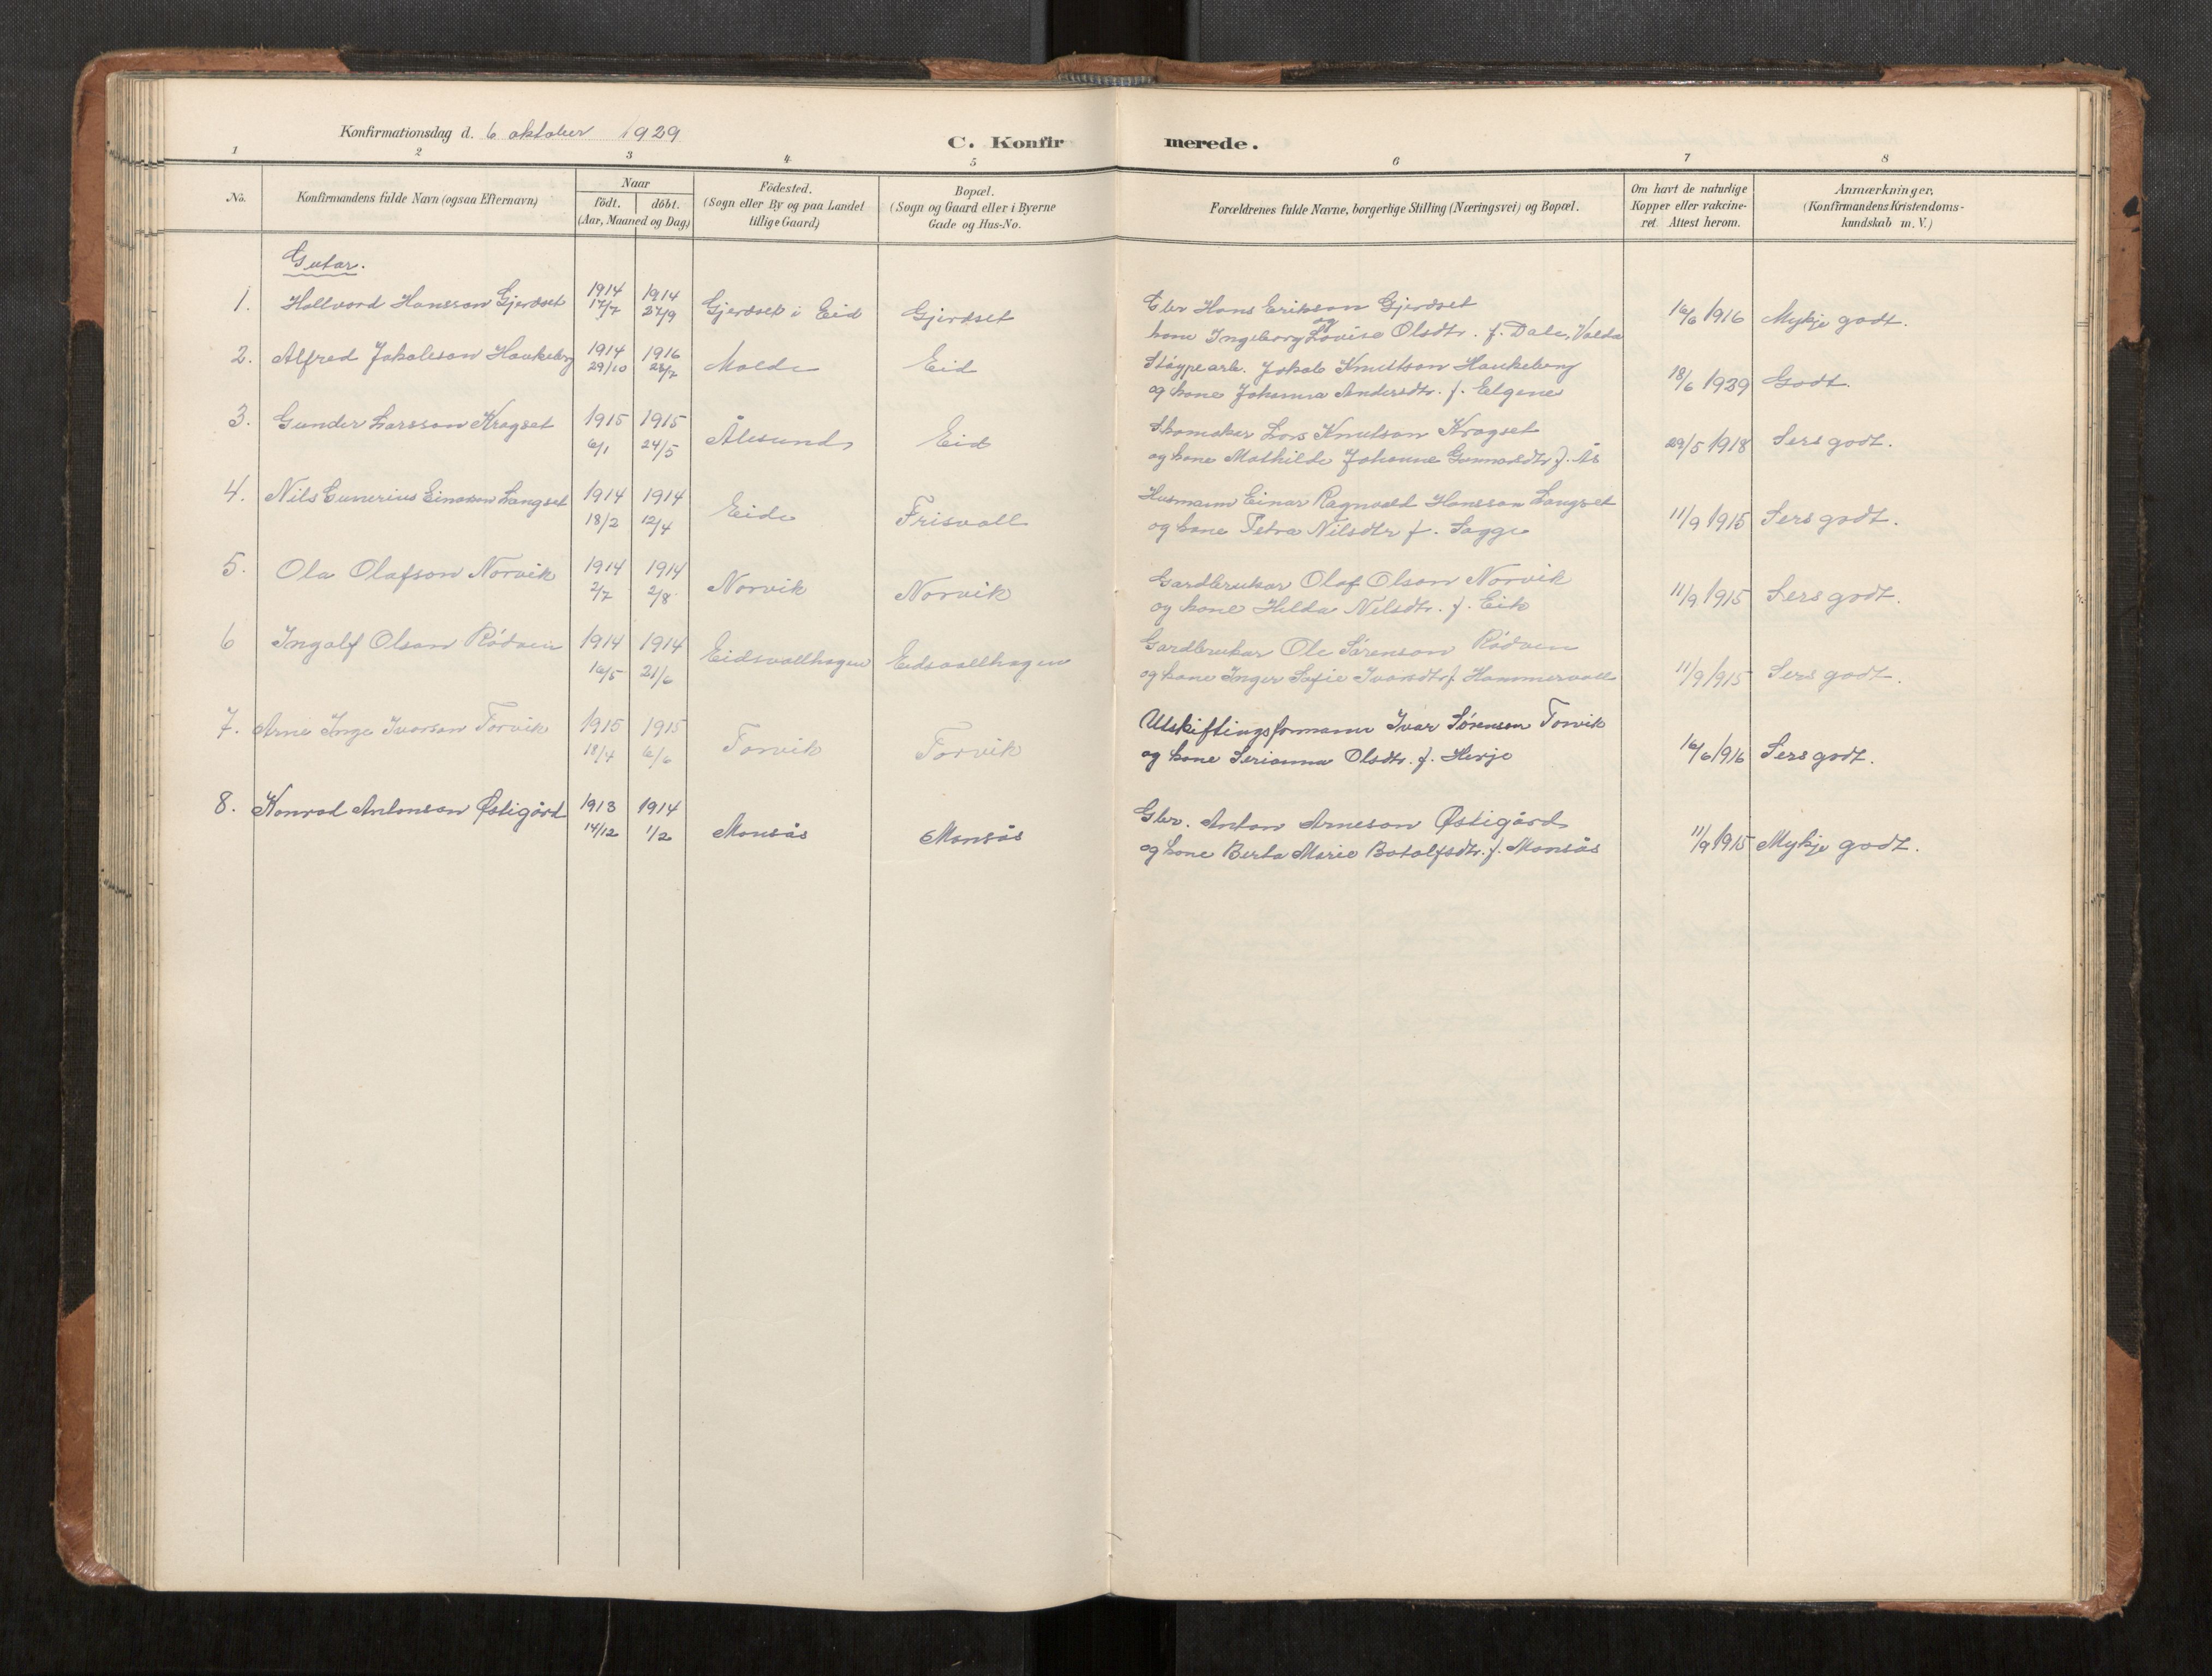 Konfirmationsdag d. 6 oktober 1929
C. Konfirmerede.
1 2 3 4 5 6 7 8
No.
Konfirmandens fulde Navn (ogsaa Efternavn)
Naar
födt. döbt.
(Aar, Maaned og Dag)
Födested.
(Sogn eller By og paa Landet
tillige Gaard)
Bopæl.
(Sogn og Gaard eller i Byerne
Gade og Hus-No.
Forældrenes fulde Navne, borgerlige Stilling (Næringsvei) og Bopæl.
Om havt de naturlige
Kopper eller vakcine-
ret. Attest herom.
Anmærkninger.
(Konfirmandens Kristendoms-
kundskab m. V.)
Gutar.
1. Hallvard Hansson Gjerdset 1914 17/7 1914 27/9 Gjerdset i Eid Gjerdset
Gbr Hans Erikson Gjerdset og
kone Ingeborg Lovise Olsdtr. f. Dale, Volda
16/6 1916 Mykje godt.
2. Alfred Jakobson Haukeberg 1914 29/10 1916 28/7 Molde Eid
Støypearb. Jakob Knutson Haukeberg
og kone Johanna Andersdtr. f. Elgenes
18/6 1929 Godt.
3. Gunder Larsson Kragset 1915 6/1 1915 24/5 Ålesund Eid
Skomaker Lars Knutson Kragset
og kone Mathilde Johanne Gunnarsdtr f. Ås
29/5 1918 Sers godt.
4. Nils Gunerius Einarson Langset 1914 18/2 1914 12/4 Eide Frisvoll
Husmann Einar Ragnvald Hansson Langset
og kone Petra Nilsdtr f. Sagge
11/9 1915 Sers godt.
5. Ola Olafson Norvik 1914 2/7 1914 2/8 Norvik Norvik
Gardbrukar Olaf Olson Norvik
og kone Hilda Nilsdtr. f. Eik
11/9 1915 Sers godt.
6 Ingolf Olson Rødven 1914 16/5 1914 21/6 Eidsvollhagen Eidsvollhagen
Gardbrukar Ole Sørenson Rødven
og kone Inger Sofie Ivarsdtr f. Hammervoll
11/9 1915 Sers godt.
7. Arne Inge Ivarson Torvik 1915 18/4 1915 6/6 Torvik Torvik
Utskiftingsformann Ivar Sørenson Torvik
og kone Serianna Olsdtr. f. Herje
16/6 1916 Sers godt.
8. Konrad Antonson Østigård 1913 14/12 1914 1/2 Monsås Monsås
Gbr. Anton Arneson Østigård
og kone Berta Marie Botolfsdtr. f. Monsås
11/9 1915 Mykje godt.